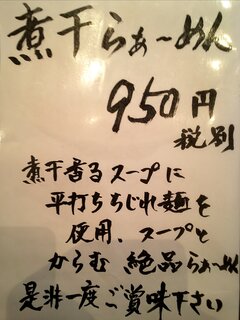 煮干らぁ〜めん
950円
税別
煮干香るスープに
平打ちちじれ麺を
使用、スープと
からむ 絶品らぁ〜めん
是非一度ご賞味下さい